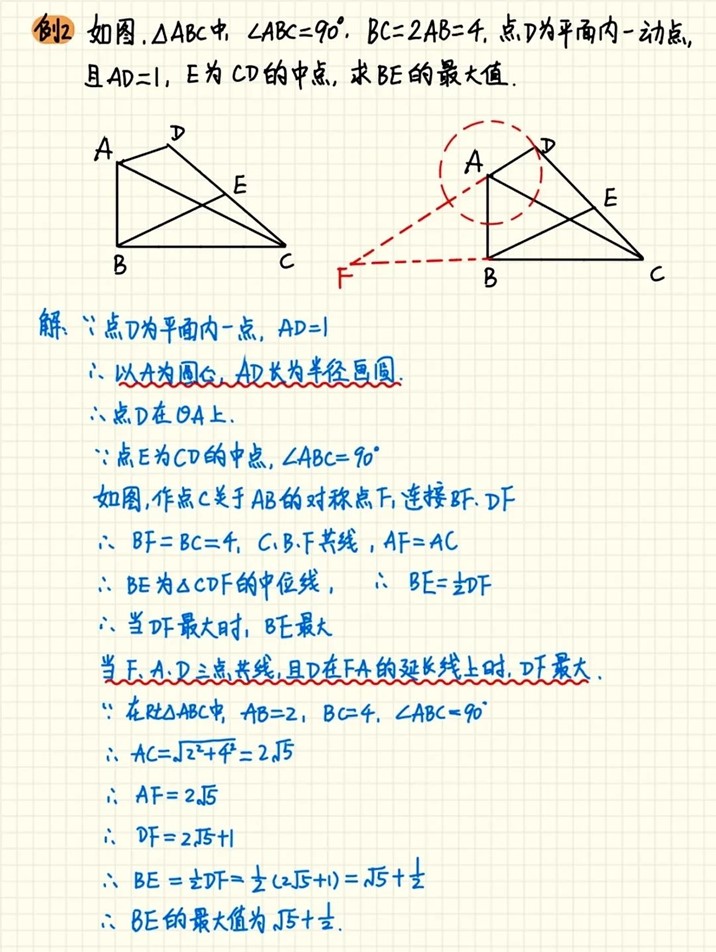 例2 如图,△ABC中,∠ABC=90°,BC=2AB=4,点D为平面内一动点,
且AD=1,E为CD的中点,求BE的最大值.
A D E B C
A D E F B C
解:∵点D为平面内一点,AD=1
∴以A为圆心,AD长为半径画圆.
∴点D在⊙A上.
∵点E为CD的中点,∠ABC=90°
如图,作点C关于AB的对称点F,连接BF、DF
∴ BF=BC=4,C、B、F共线,AF=AC
∴ BE为△CDF的中位线, ∴ BE=½DF
∴ 当DF最大时,BE最大
当F、A、D三点共线,且D在FA的延长线上时,DF最大.
∵ 在Rt△ABC中,AB=2,BC=4,∠ABC=90°
∴ AC=√(2²+4²)=2√5
∴ AF=2√5
∴ DF=2√5+1
∴ BE=½DF=½(2√5+1)=√5+½
∴ BE的最大值为√5+½.